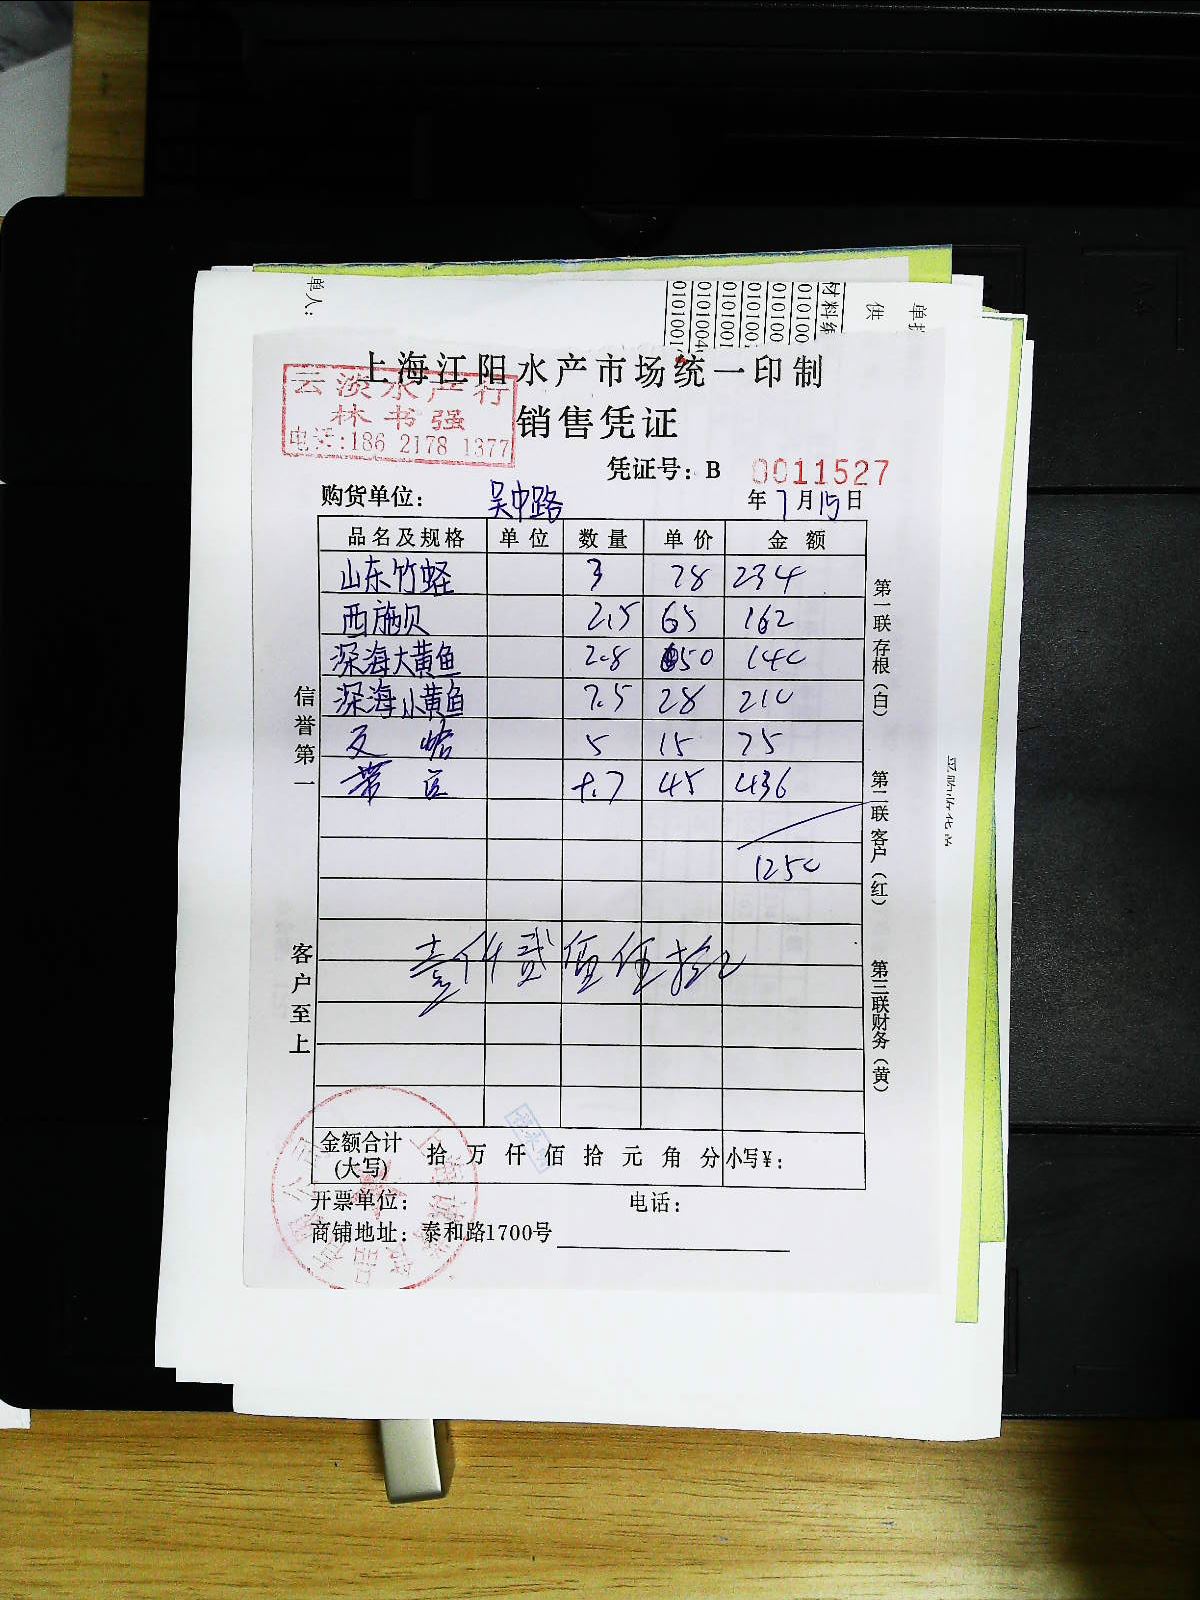 单人:
材料编
010100
010100
0101001
供
单扌
上海江阳水产市场统一印制
云淡水产行
林书强
电话:186 2178 1377
销售凭证
凭证号: B 0011527
购货单位: 吴中路 年 7 月 15 日
品名及规格 单位 数量 单价 金额
山东竹蛏 3 78 234
西施贝 2.5 65 162
深海大黄鱼 2.8 50 140
深海小黄鱼 7.5 28 210
文蛤 5 15 75
45 436
1250
壹仟贰佰伍拾元
信誉第一
客户至上
第一联存根(白)
第二联客户(红)
第三联财务(黄)
金额合计(大写) 拾 万 仟 佰 拾 元 角 分 小写¥:
开票单位: 电话:
商铺地址: 泰和路1700号